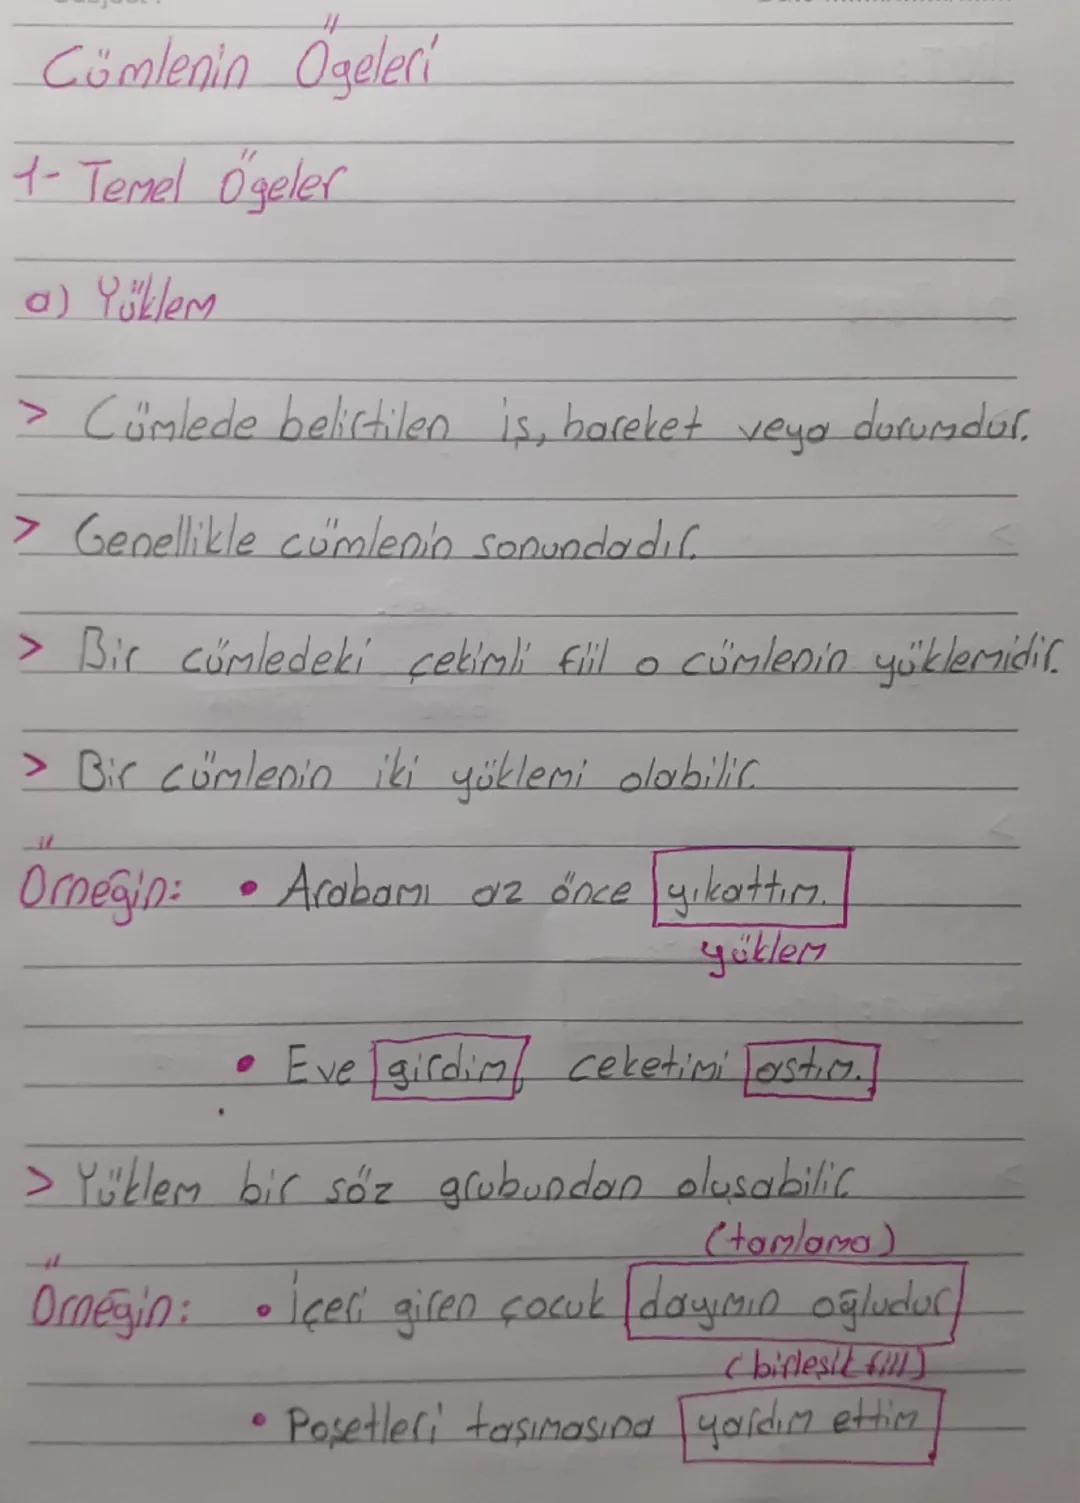 Cümlenin Ögeleri
1- Temel Ögeler
a) Yüklem
> Cümlede belirtilen iş, hareket veya durumdur.
> Genellikle cümlenin sonundadır.
> Bir cümledeki çekimli fiil o cümlenin yüklemidir.
> Bir cümlenin iki yüklemi olabilir.
Örneğin: • Arabamı az önce yıkattım.
yüklem
• Eve girdim, ceketimi astım.
> Yüklem bir söz grubundan oluşabilir.
(tamlama)
Örneğin: • İçeri giren çocuk dayımın oğludur
(birleşik fiil)
• Poşetleri taşımasına yardım ettim